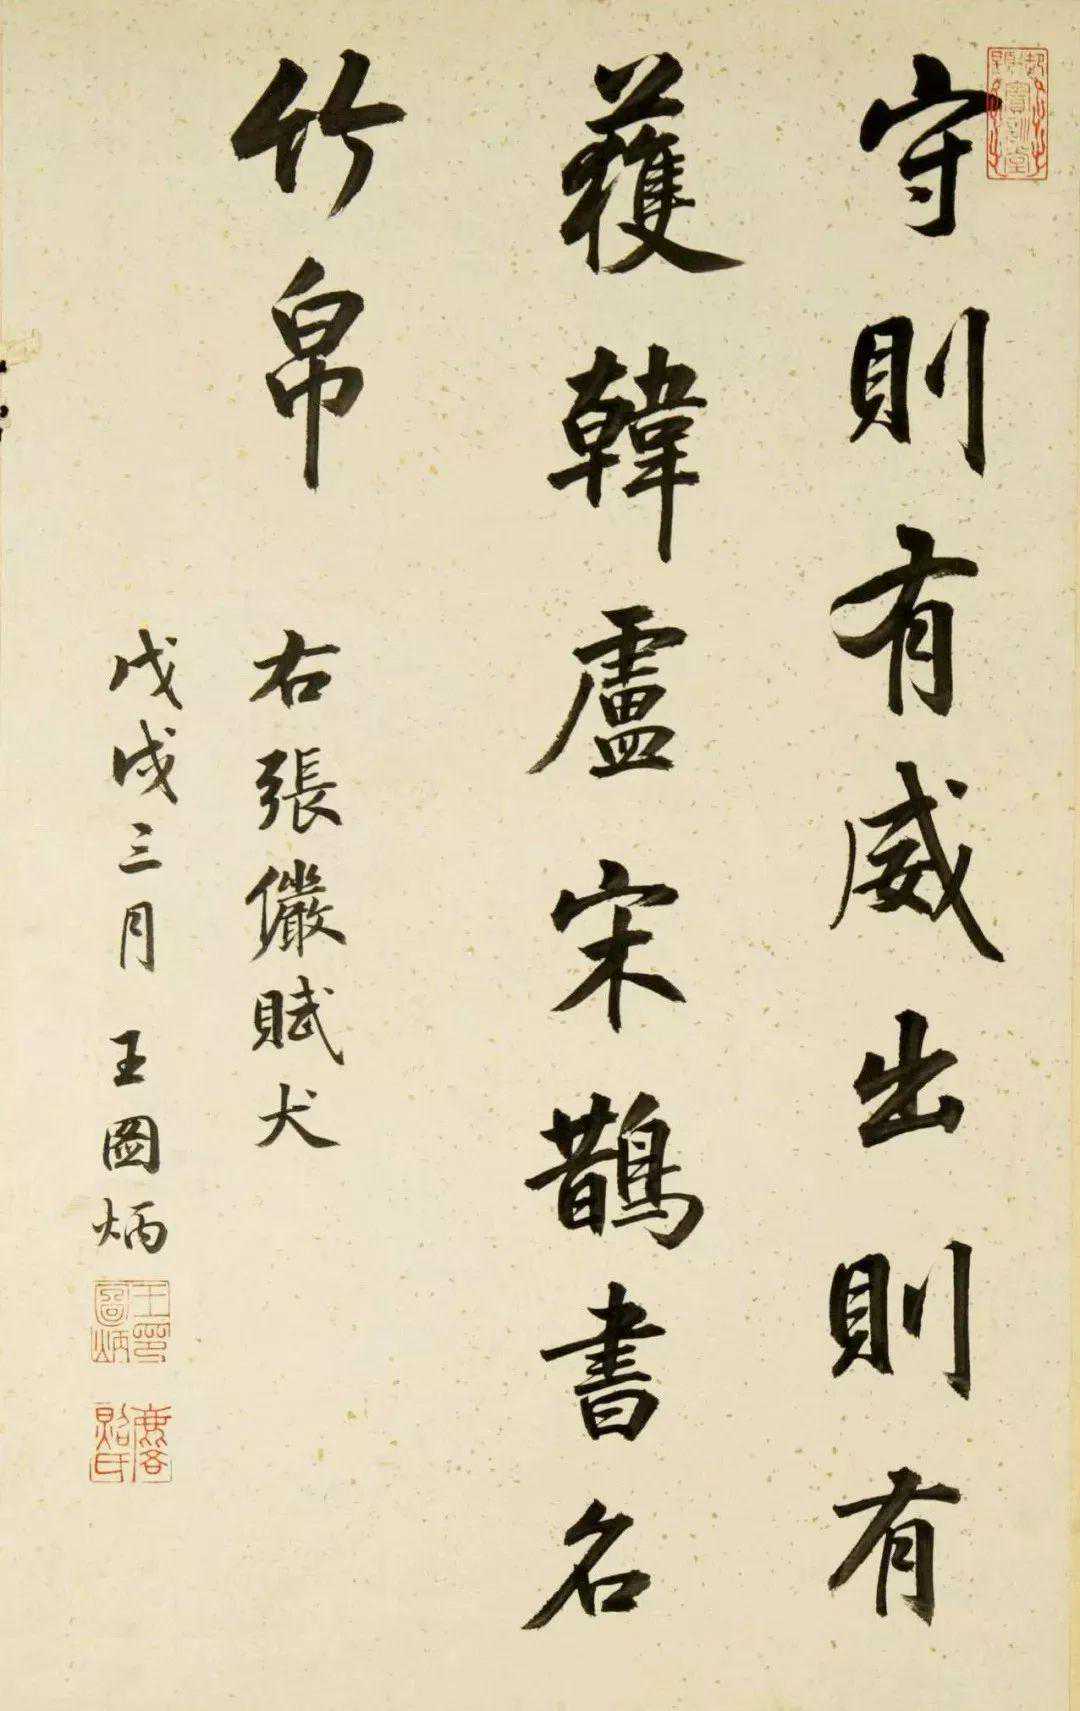 守則有威出則有
獲韓盧宋鵲書名
竹帛
右張儼賦犬
戊戌三月王圖炳
王圖炳印